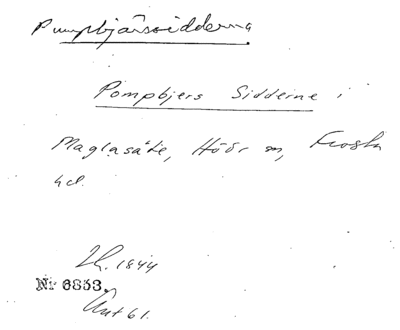 Pumpbjärsidderna
Pompbjers Sidderne i
Maglasäte, Höör sn, Frosta
hd.
Lh. 1844
Nr 6833.
Ant 61.